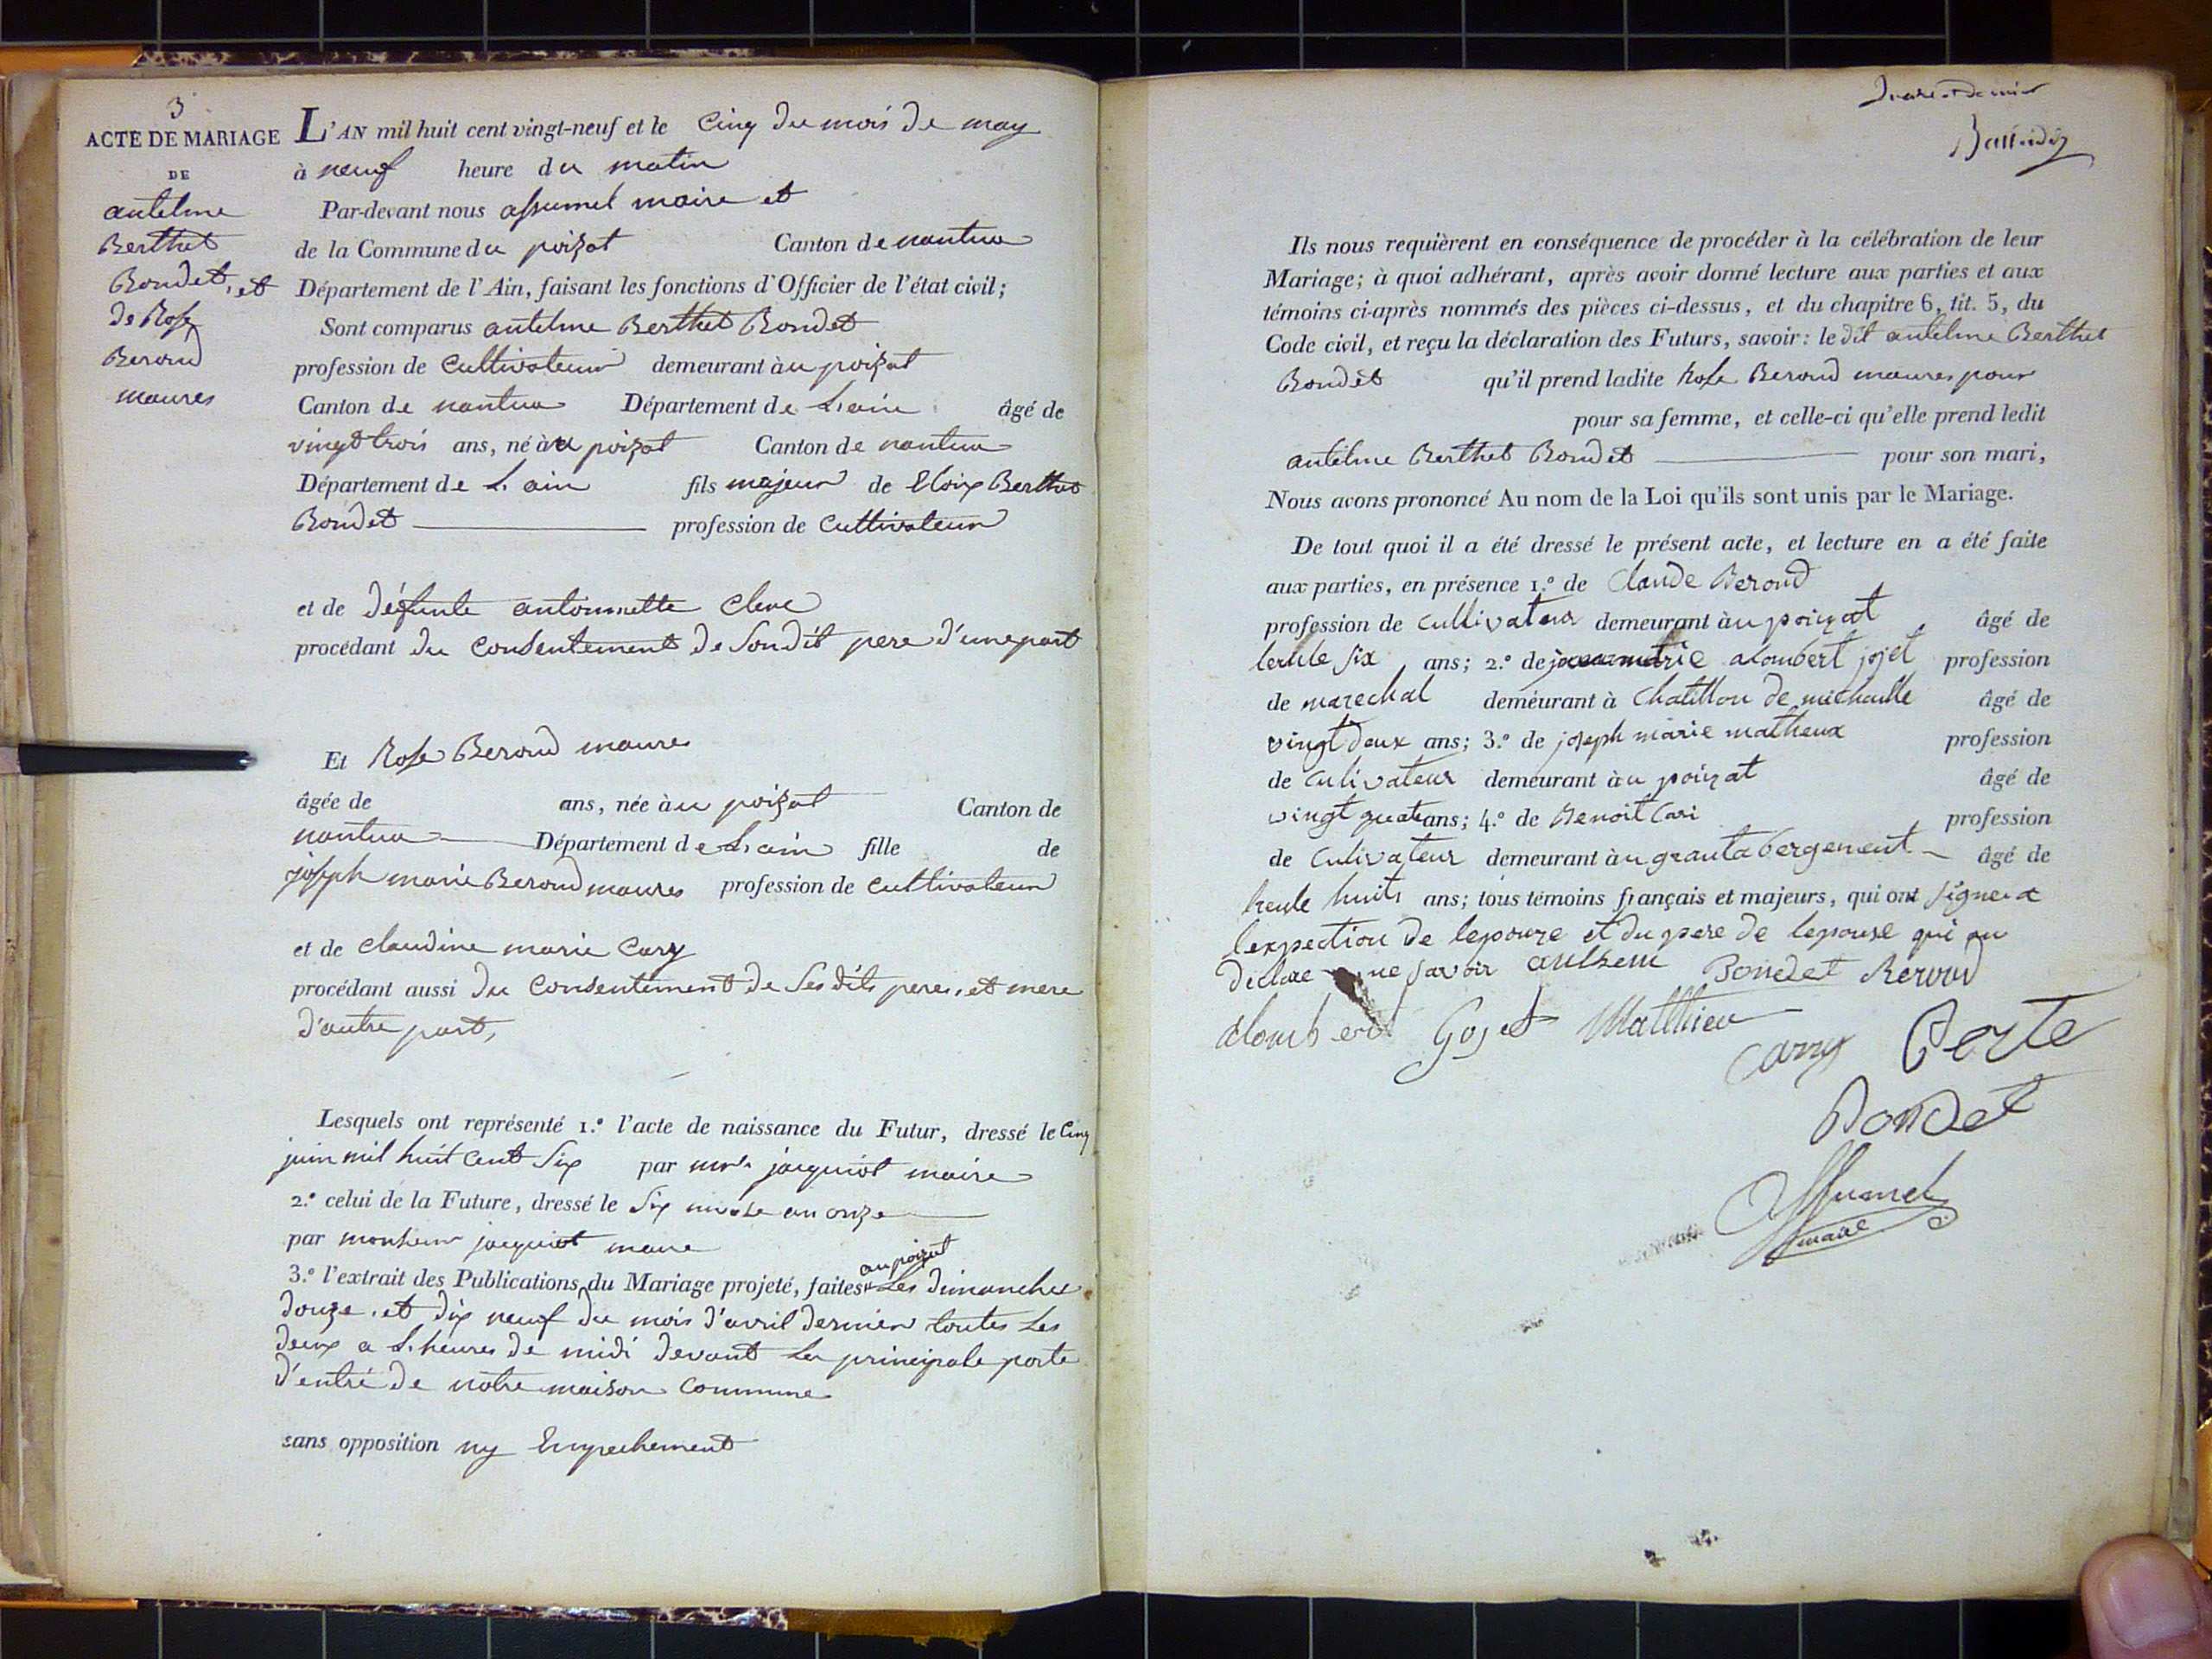 3
ACTE DE MARIAGE
DE
antelme
Berthet
Bondet, et
de Rose
Beroud
maures
L'AN mil huit cent vingt-neuf et le Cinq du mois de may
à neuf heure du matin
Par-devant nous assumel maire et
de la Commune du poizat Canton de nantua
Département de l'Ain, faisant les fonctions d'Officier de l'état civil;
Sont comparus antelme Berthet Bondet
profession de Cultivateur demeurant àu poizat
Canton de nantua Département de L'ain âgé de
vingt trois ans, né àu poizat Canton de nantua
Département de L'ain fils majeur de Eloix Berthet
Bondet profession de Cultivateur
et de défunte antoinette Clerc
procédant du Consentement de Son dit pere d'une part
Et Rose Beroud maures
âgée de ans, née àu poizat Canton de
nantua Département de L'ain fille de
joseph marie Beroud maures profession de cultivateur
et de claudine marie Cary
procédant aussi du Consentement de Ses dits peres, et mere
d'autre part,
Lesquels ont représenté 1.º l'acte de naissance du Futur, dressé le Cinq
juin mil huit Cent Six par mr jacquiot maire
2.º celui de la Future, dressé le Six nivose an onze
par monsieur jacquiot maire
au poizat
3.º l'extrait des Publications du Mariage projeté, faites Les dimanches
douze, et dix neuf du mois d'avril dernier toutes Les
deux a L'heures de midi devant La principale porte
d'entré de notre maison Commune
sans opposition ny Empechement
Ils nous requièrent en conséquence de procéder à la célébration de leur
Mariage; à quoi adhérant, après avoir donné lecture aux parties et aux
témoins ci-après nommés des pièces ci-dessus, et du chapitre 6, tit. 5, du
Code civil, et reçu la déclaration des Futurs, savoir: le dit antelme Berthet
Bondet qu'il prend ladite Rose Beroud maures pour
pour sa femme, et celle-ci qu'elle prend ledit
antelme Berthet Bondet pour son mari,
Nous avons prononcé Au nom de la Loi qu'ils sont unis par le Mariage.
De tout quoi il a été dressé le présent acte, et lecture en a été faite
aux parties, en présence 1.º de Claude Beroud
profession de cultivateur demeurant àu poizat âgé de
six ans; 2.º de alombert jojet profession
de marechal demeurant à Chatillon de michaille âgé de
vingt deux ans; 3.º de joseph marie matheux profession
de culivateur demeurant àu poizat âgé de
vingt quatre ans; 4.º de Benoit Cari profession
de Culivateur demeurant àu grantabergement âgé de
trente huits ans; tous témoins français et majeurs, qui ont signe a
lexpection de lepouze et du pere de lepouse qui on
declare ne savoir antelem Bondet Beroud
alombert Gojet Matthieu
Carry Berte
Bondet
Assumel
maire